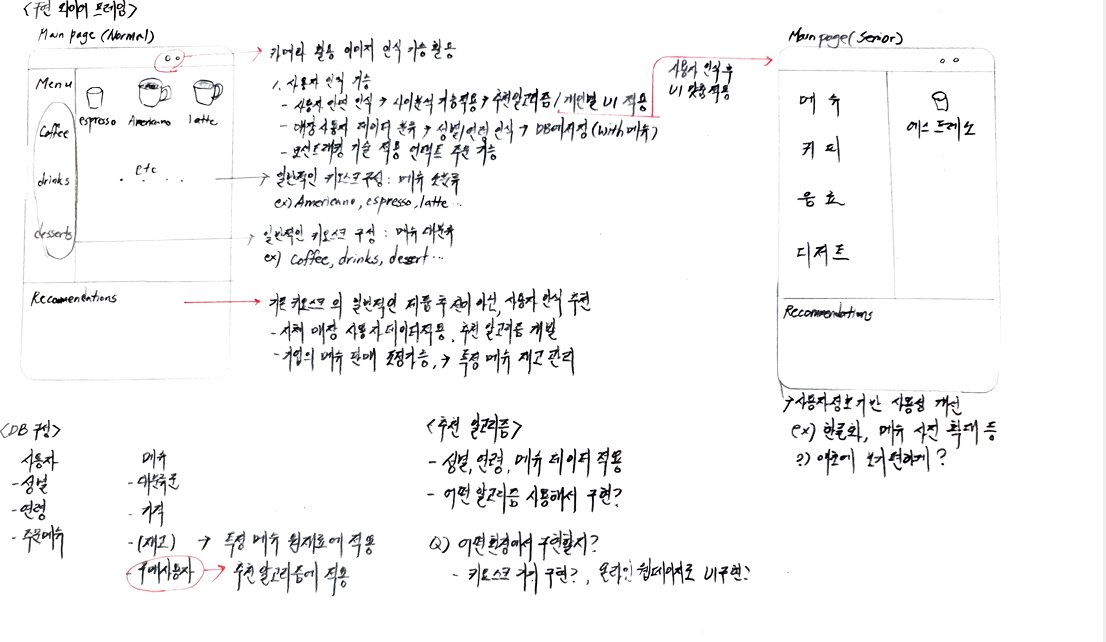 <구현 와이어 프레임>
Main page (Normal)
Menu
Coffee
drinks
desserts
espresso
Americano
latte
etc
Recomendations
→ 카메라 활용 이미지 인식 기능 활용
1. 사용자 인식 기능
- 사용자 안면 인식 → 시선분석 기능적용 → 추천알고리즘 / 개인별 UI 적용
- 매장사용자 데이터 분류 → 성별/연령 인식 → DB에저장 (with메뉴)
- 모션트래킹 기술 적용 언택트 주문 가능
→ 일반적인 키오스크구성 : 메뉴 소분류
ex) Americano, espresso, latte...
→ 일반적인 키오스크 구성 : 메뉴 대분류
ex) Coffee, drinks, dessert...
→ 기존 키오스크의 일반적인 제품 추천이 아닌, 사용자 인식 추천
- 자체 매장 사용자 데이터적용, 추천 알고리즘 개발
- 기업의 메뉴 판매 조정가능, → 특정 메뉴 재고 관리
사용자 인식 후
UI 맞춤적용
Main page (Senior)
메뉴
커피
음료
디저트
에스프레소
Recommendations
→ 사용자정보기반 사용성 개선
ex) 한글화, 메뉴 사진 확대 등
?) 애초에 보기편하게?
<DB 구성>
사용자
- 성별
- 연령
- 주문메뉴
메뉴
- 대분류
- 가격
- (재고) → 특정 메뉴 원재료에 적용
- 구매사용자 → 추천알고리즘에 적용
<추천 알고리즘>
- 성별, 연령, 메뉴 데이터 적용
- 어떤 알고리즘 사용해서 구현?
Q) 어떤환경에서 구현할지?
- 키오스크 기기 구현?, 온라인 웹페이지로 UI구현?